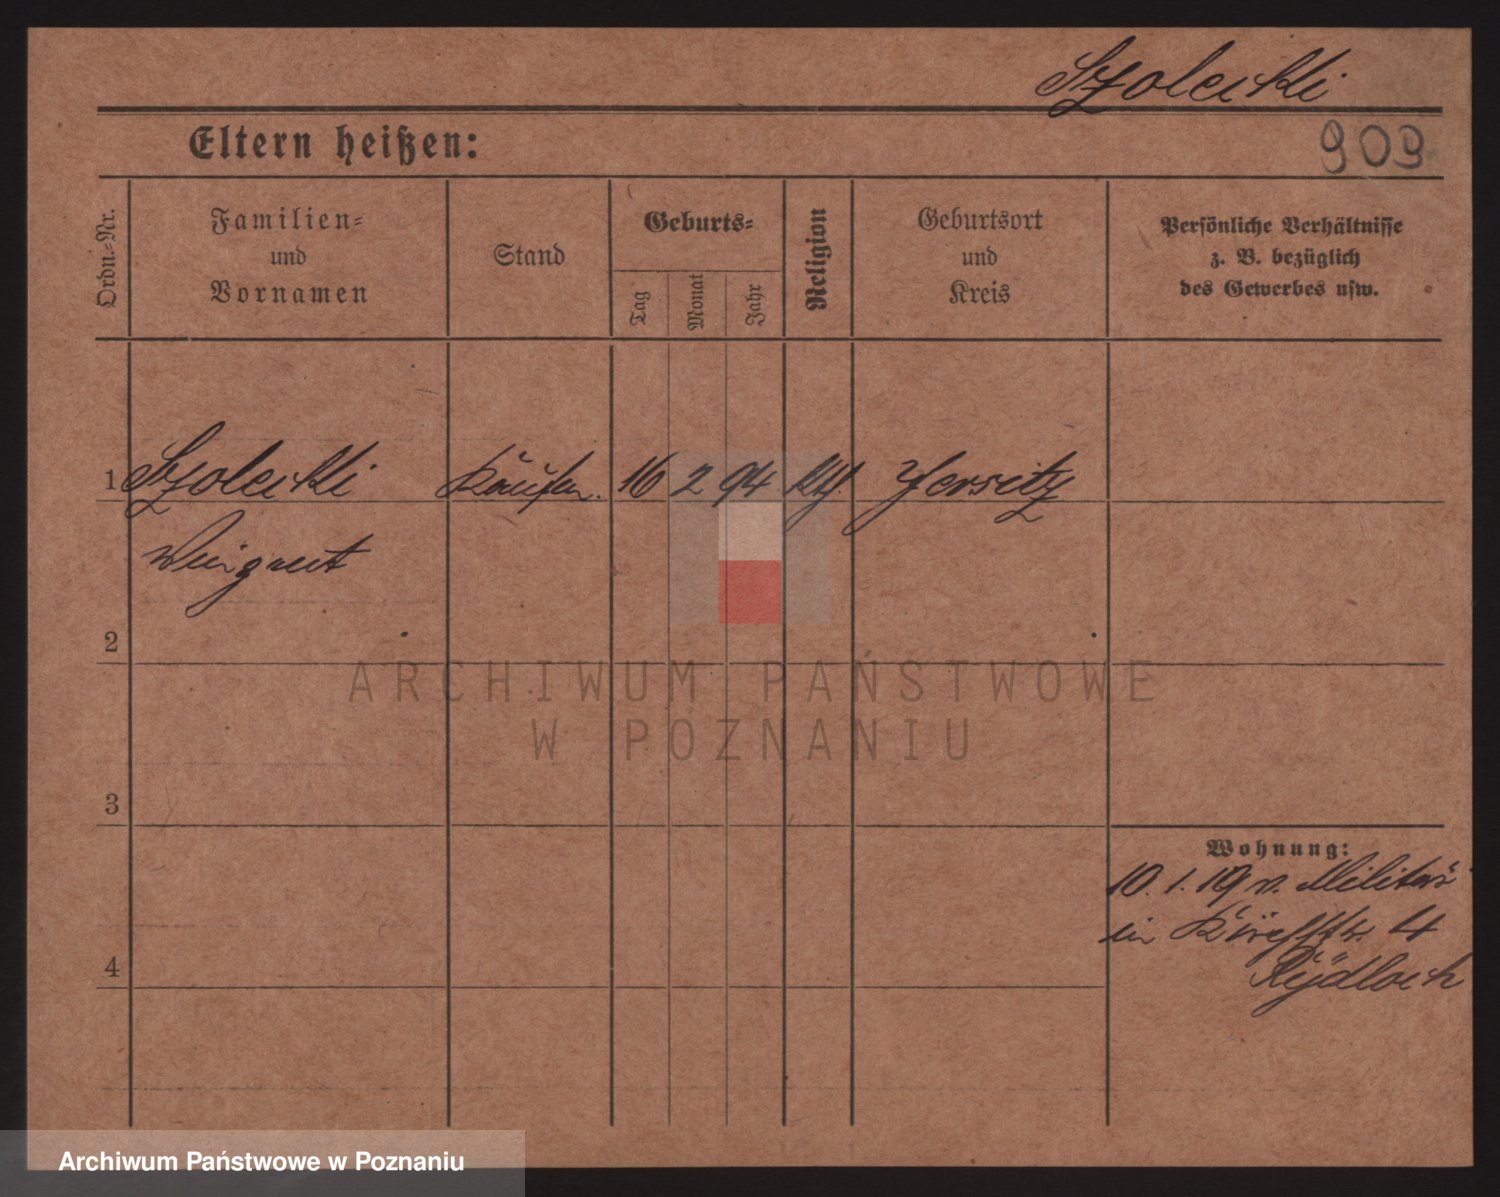 Szolecki
Eltern heißen:
909
Ordn.-Nr.
Familien-
und
Vornamen
Stand
Geburts-
Tag
Monat
Jahr
Religion
Geburtsort
und
Kreis
Persönliche Verhältnisse
z. B. bezüglich
des Gewerbes usw.
1
Szolecki
16
2
94
Jersitz
2
3
4
Wohnung:
10. 1. 19 v. Militär
in 4
ARCHIWUM PAŃSTWOWE
W POZNANIU
Archiwum Państwowe w Poznaniu